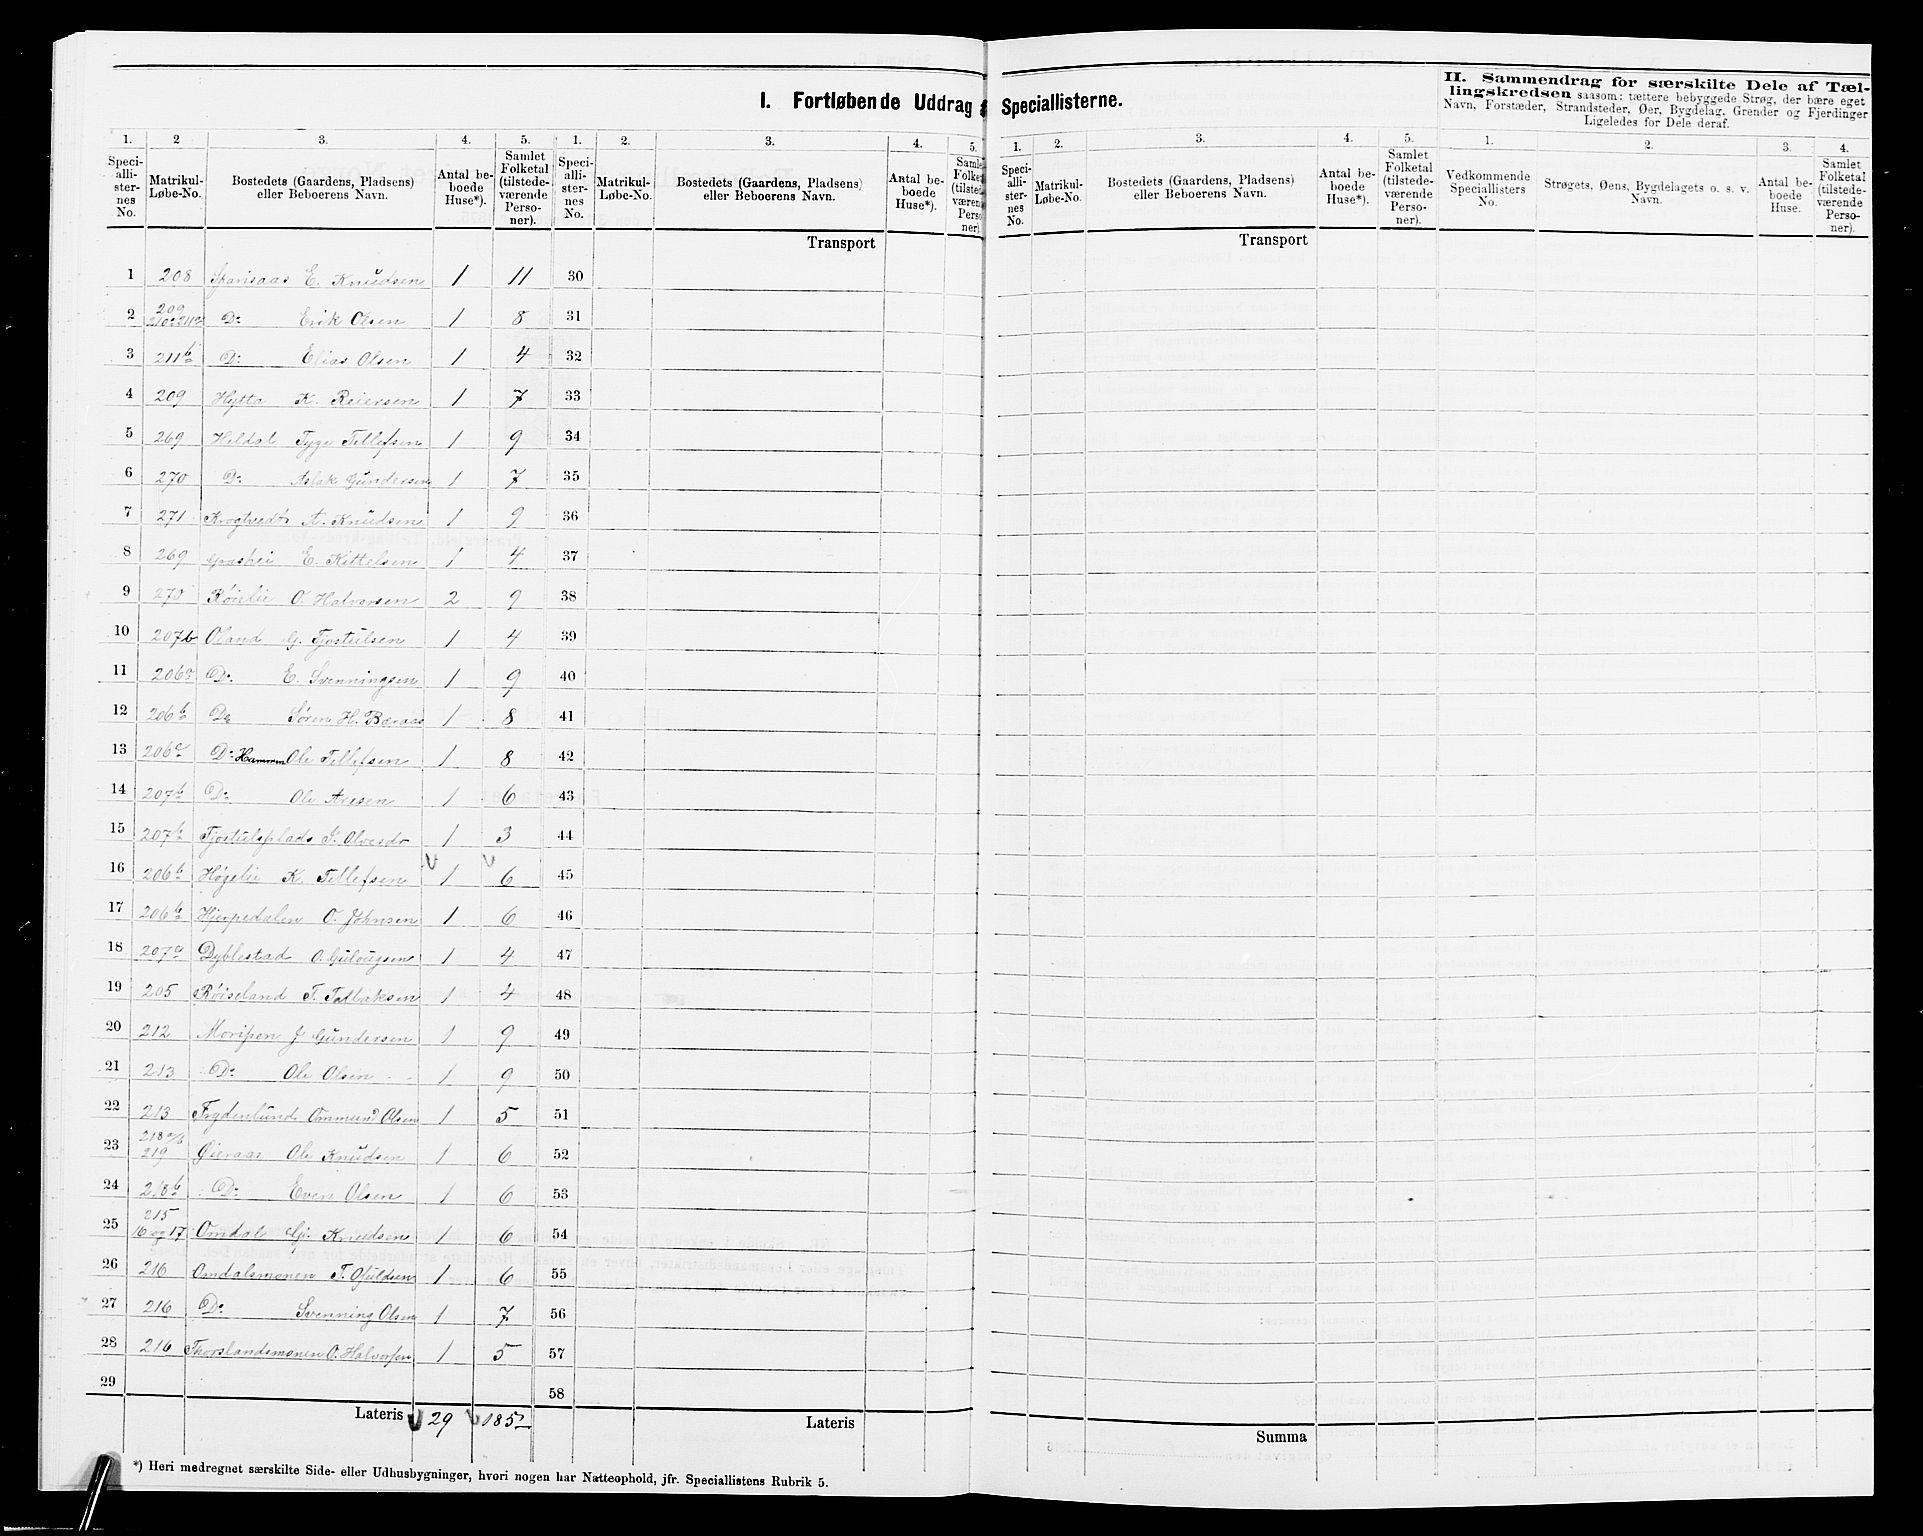 I. Fortløbende Uddrag
1. 2 3. 4. 5. 1. 2. 3. 4. 5.
Speciallisternes No. Matrikul-Løbe-No. Bostedets (Gaardens, Pladsens) eller Beboerens Navn. Antal beboede Huse*). Samlet Folketal (tilstedeværende Personer). Speciallisternes No. Matrikul-Løbe-No. Bostedets (Gaardens, Pladsens) eller Beboerens Navn. Antal beboede Huse*).
Transport
1 208 E. Knudsen 1 11 30
2 209 210 211a Do Erik Olsen 1 8 31
3 211b Do Elias Olsen 1 4 32
4 209 Hytta K. Reiersen 1 7 33
5 269 Heldal Tyge Tellefsen 1 9 34
6 270 Do Aslak Gundersen 1 7 35
7 271 Krogtvedt A. Knudsen 1 9 36
8 269 Grashei E. Kittelsen 1 4 37
9 270 Røislie O. Halvorsen 2 9 38
10 207b Oland G. Tjostulsen 1 4 39
11 206a Do E. Svenningsen 1 9 40
12 206b Do Søren H. Bæraas 1 8 41
13 206c Do Hammen Ole Tellefsen 1 8 42
14 207b Do Ole Aresen 1 6 43
15 207b Tjostulsplads Olvesdr 1 3 44
16 206b Høgelie K. Tellefsen 1 6 45
17 206b Hjerpedalen O. Johnsen 1 6 46
18 207a Dyblestad O. Gulougsen 1 4 47
19 205 Røiseland T. Tallaksen 1 4 48
20 212 Morisen J Gundersen 1 9 49
21 213 Do Ole Olsen 1 9 50
22 213 Frydenlund Ommund Olsen 1 5 51
23 218a/b 219 Øieraas Ole Knudsen 1 6 52
24 218b Do Even Olsen 1 6 53
25 215 16 og 17 Omdal Gj. Knudsen 1 6 54
26 216 Omdalsmonen T. 1 6 55
27 216 Do Svenning Olsen 1 7 56
28 216 Thorslandsmonen O. Halvorsen 1 5 57
29 58
Lateris 29 185 Lateris
*) Heri medregnet særskilte Side- eller Udhusbygninger, hvori nogen har Natteophold, jfr. Speciallistens Rubrik 5.
Speciallisterne.
1. 2. 3. 4. 5.
Speciallisternes No. Matrikul-Løbe-No. Bostedets (Gaardens, Pladsens) eller Beboerens Navn. Antal beboede Huse*). Samlet Folketal (tilstedeværende Personer).
Transport
Summa
II. Sammendrag for særskilte Dele af Tæl-
lingskredsen saasom: tættere bebyggede Strøg, der bære eget
Navn, Forstæder, Strandsteder, Øer, Bygdelag, Grender og Fjerdinger
Ligeledes for Dele deraf.
1. 2. 3. 4.
Vedkommende Speciallisters No. Strøgets, Øens, Bygdelagets o. s. v. Navn. Antal beboede Huse. Samlet Folketal (tilstedeværende Personer).